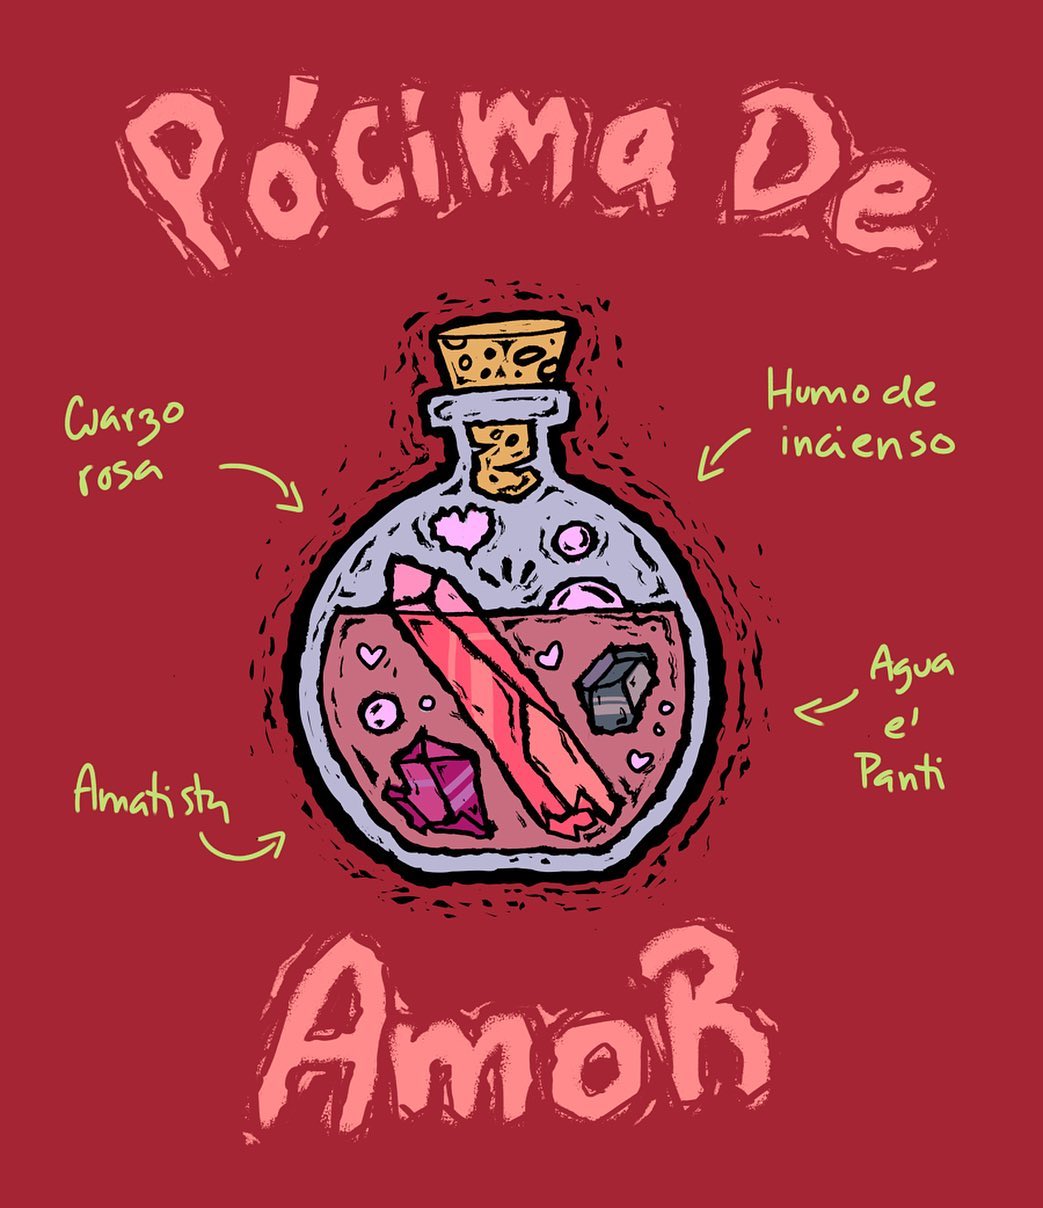 Pócima De
Cuarzo
rosa
Humo de
incienso
Agua
e'
Panti
Amatista
AmoR